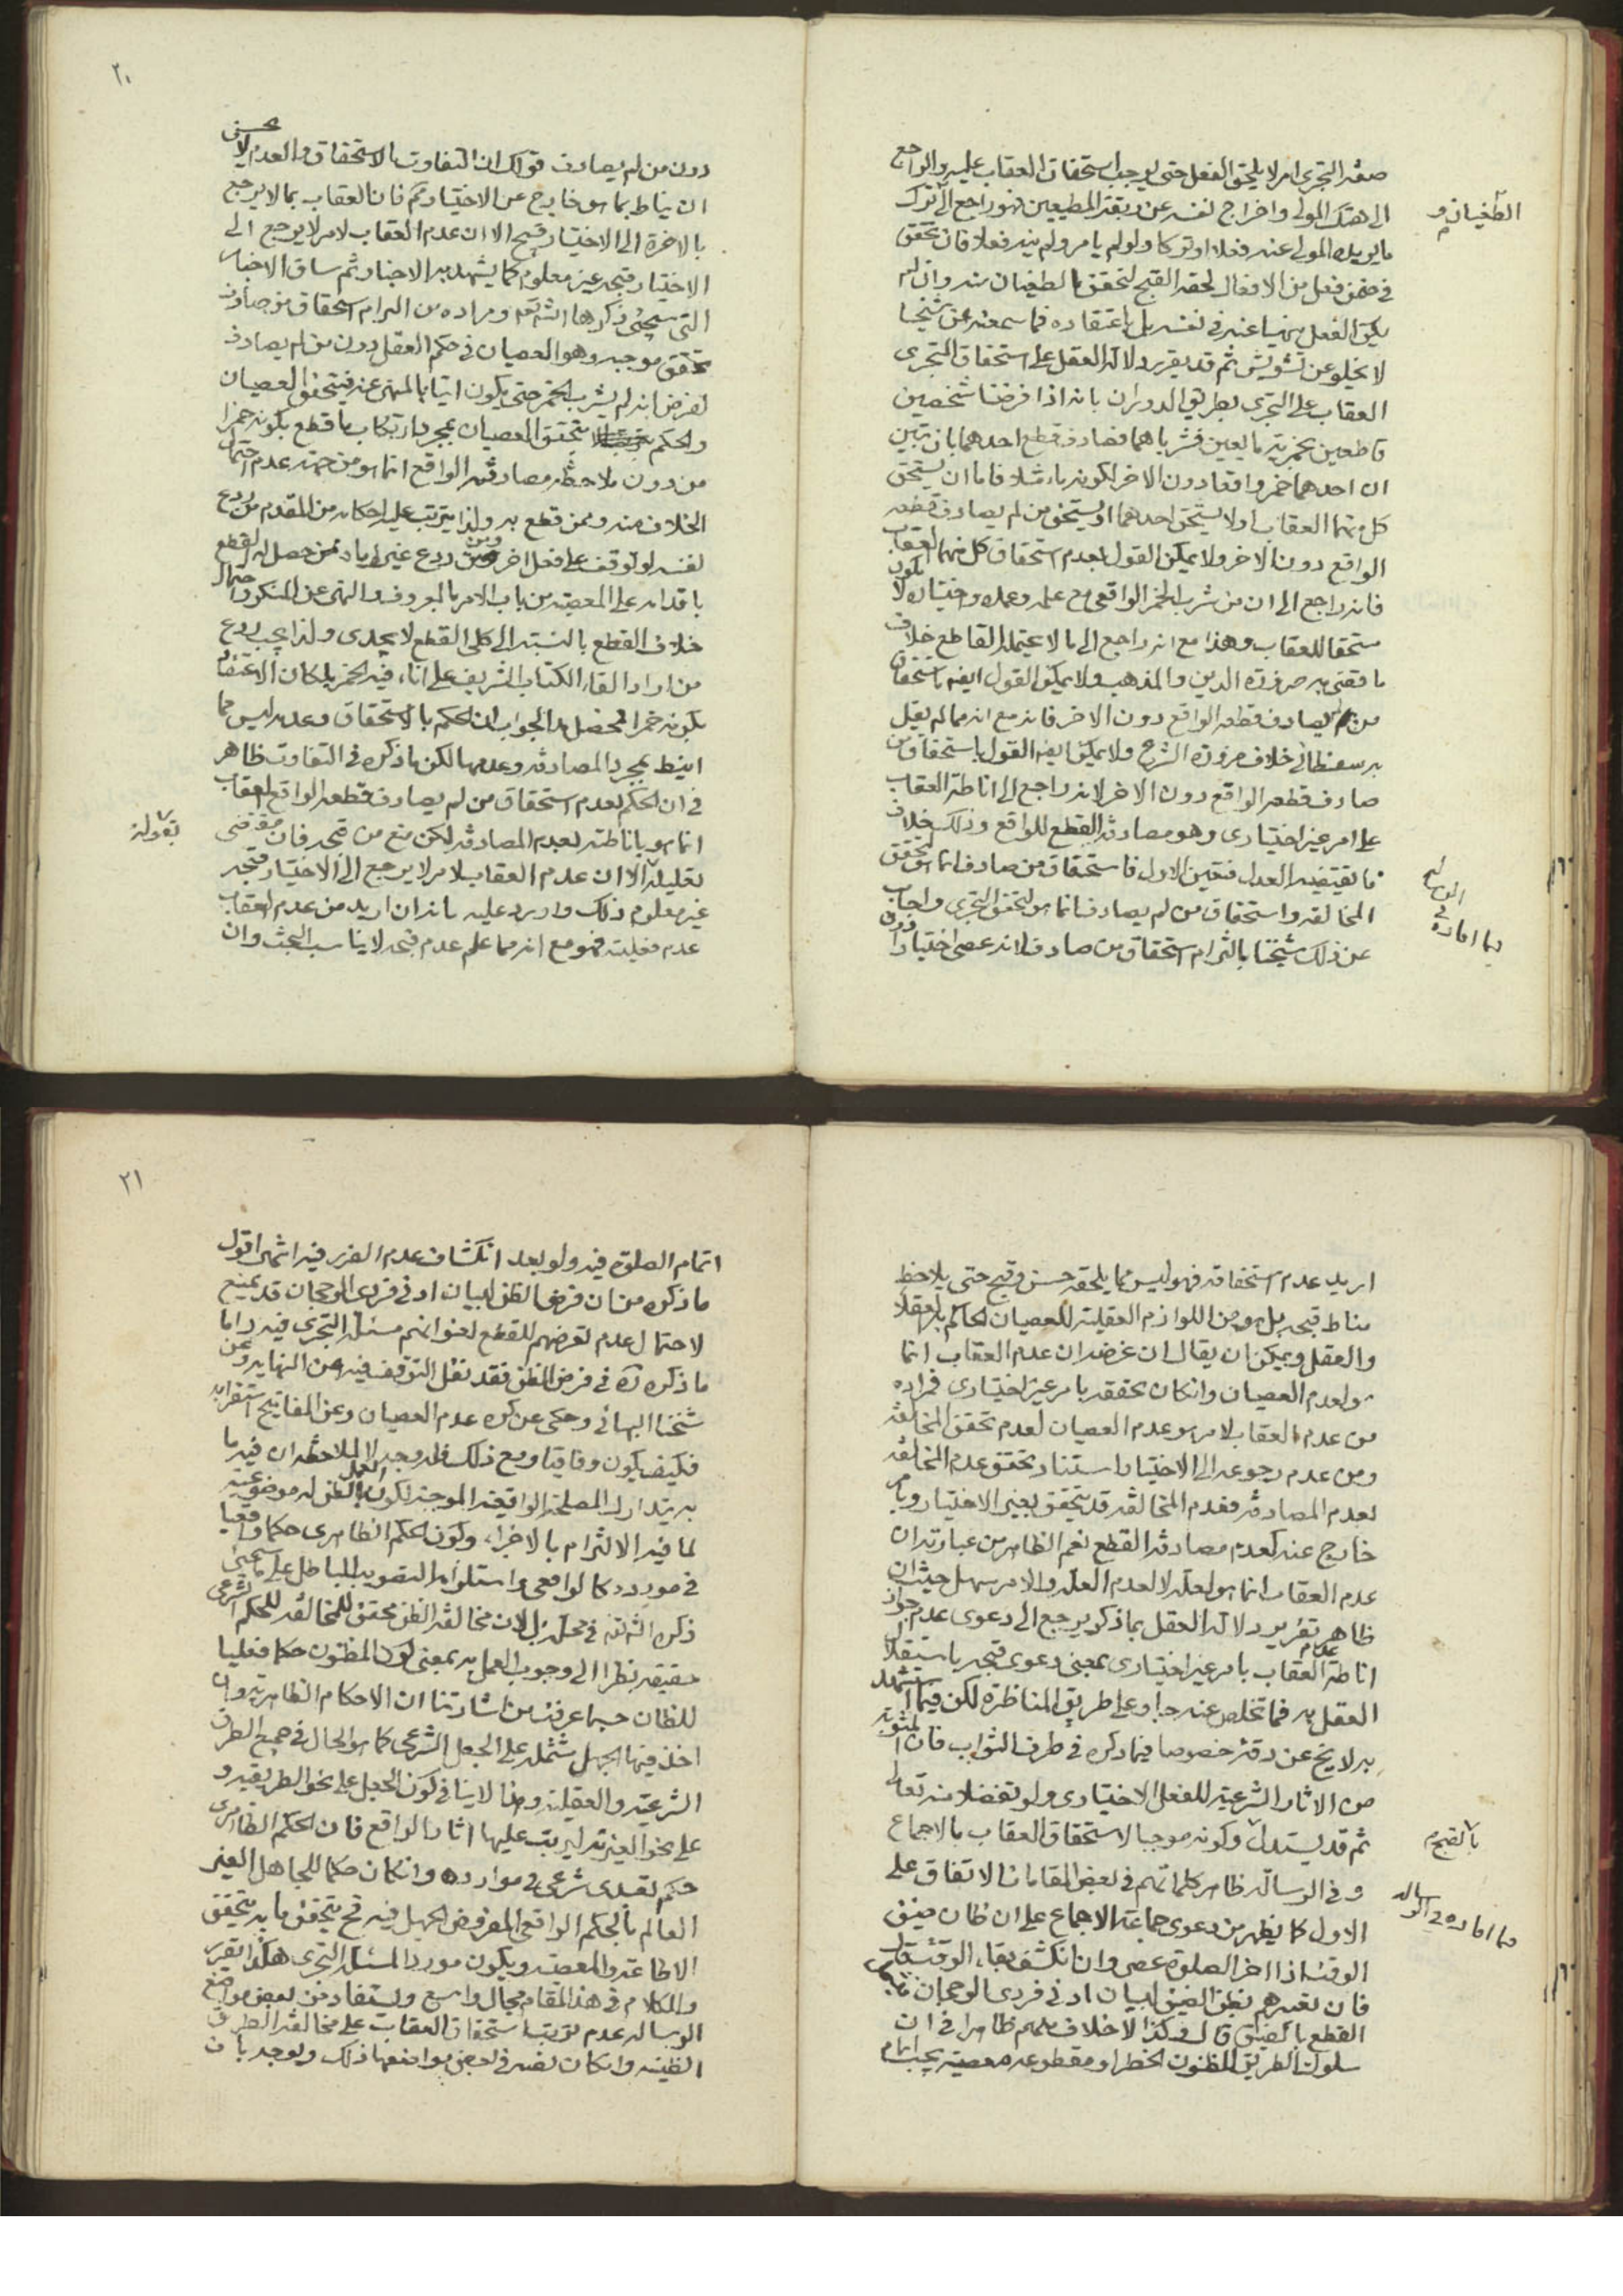 صفة التجرى امر لا يلحق الفعل حتى يوجب استحقاق العقاب عليه والراجع
الى هتك المولى واخراج نفسه عن ربقة المطيعين فهو راجع الى ترك
الطغيان و
ما يريده المولى عنه فعلا او تركا ولو لم يامر ولم ينه فعلا فان تحقق
فى ضمن فعل من الافعال لحقه القبح لتحقق الطغيان منه وان لم
يكن الفعل منهيا عنه فى نفسه بل باعتقاده فما سمعته عن شيخنا
لا يخلو عن تشويش ثم قد يقرر دلالة العقل على استحقاق المتجرى
العقاب على التجرى بطريق الدوران بانه اذا فرضنا شخصين
قاطعين بخمرية مايعين فشرباهما فصادف قطع احدهما بان تبين
ان احدهما خمر واقعا دون الاخر لكونه ماء مثلا فاما ان يستحق
كل منهما العقاب او لا يستحق احدهما او يستحق من لم يصادف قطعه
الواقع دون الاخر ولا يمكن القول بعدم استحقاق كل منهما العقاب
فانه راجع الى ان من شرب الخمر الواقعى مع علمه وعمده واختياره لا يكون
مستحقا للعقاب وهذا مع انه راجع الى ما لا يحتمله القاطع خلاف
ما قضى به ضرورة الدين والمذهب ولا يمكن القول ايضا باستحقاق
من لم يصادف قطعه الواقع دون الاخر فانه مع انه مما لم يقل
به سفسطائى خلاف ضرورة الشرع ولا يمكن ايضا القول باستحقاق من
صادف قطعه الواقع دون الاخر لانه راجع الى اناطة العقاب
على امر غير اختيارى وهو مصادفة القطع للواقع وذلك خلاف
ما يقتضيه العدل فتعين الاول فاستحقاق من صادف انما هو لتحقق
المخالفة واستحقاق من لم يصادف انما هو لتحقق التجرى واجاب
فيما افاده فى الرسالة
عن ذلك شيخنا بالتزام استحقاق من صادف لانه عصى اختيارا دون
٢٠
دون من لم يصادف قولك ان التفاوت بالاستحقاق والعدم لا يحسن
ان يناط بما هو خارج عن الاختيار مم فان العقاب بما لا يرجع
بالاخرة الى الاختيار قبيح الا ان عدم العقاب لامر لا يرجع الى
الاختيار قبحه غير معلوم كما يشهد به الاخبار ثم ساق الاخبار
التى سيجئ ذكرها انشاء الله ومراده من التزام استحقاق من صادف
تحقق موجبه وهو العصيان فى حكم العقل دون من لم يصادف
لفرض انه لم يشرب الخمر حتى يكون اتيا بالمنهى عنه فيتحقق العصيان
والحكم بتحقق العصيان بمجرد ارتكاب ما قطع بكونه خمرا
من دون ملاحظة مصادفته الواقع انما هو من جهة عدم احتمال
الخلاف منه وممن قطع به ولذا يترتب عليه احكامه من المقدم من ردع
لنفسه لو توقف على فعل اخر ومن ردع غيره اياه ممن حصل له القطع
باقدامه على المعصية من باب الامر بالمعروف والنهى عن المنكر واحتمال
خلاف القطع بالنسبة الى كلى القطع لا يجدى ولذا يجب ردع
من اراد القاء الكتاب الشريف على اناء فيه الخمر بل كان الاعتقاد
بكونه خمرا فمحصل الجواب ان الحكم بالاستحقاق وعدمه ليس مما
انيط بمجرد المصادفة وعدمها لكن ما ذكره فى التفاوت ظاهر
فى ان الحكم بعدم استحقاق من لم يصادف قطعه الواقع العقاب
انما هو باناطته لعدم المصادفة لكن منع من قبحه فان مقتضى
بقوله
تعليله الا ان عدم العقاب لامر لا يرجع الى الاختيار قبحه
غير معلوم ذلك واورد عليه بانه ان اريد من عدم العقاب
عدم فعليته فهو مع انه مما علم عدم قبحه لا يناسب البحث وان
اريد عدم استحقاقه فهو ليس مما يلحقه حسن وقبح حتى يلاحظ
مناط قبحه بل هو من اللوازم العقلية للعصيان الحاكم بها العقلاء
والعقل ويمكن ان يقال ان غرضه ان عدم العقاب انما
هو لعدم العصيان وان كان تحققه بامر غير اختيارى فمراده
من عدم العقاب لامر هو عدم العصيان لعدم تحقق المخالفة
ومن عدم رجوعه الى الاختيار استناد تحقق عدم المخالفة
لعدم المصادفة فعدم المخالفة قد يتحقق بغير الاختيار وبامر
خارج عنه كعدم مصادفة القطع نعم الظاهر من عبارته ان
عدم العقاب انما هو لعلة لا لعدم العلة والامر سهل حيث ان
ظاهر تقرير دلالة العقل بما ذكر يرجع الى دعوى عدم جواز
اناطة عدم العقاب بامر غير اختيارى بمعنى دعوى قبحه باستقلال
العقل به فما تخلص عنه جار على طريق المناظرة لكن فيما استشهد
به لا يخ عن دقة خصوصا فيما ذكره فى طرف الثواب فان المثوبة
من الاثار الشرعية للفعل الاختيارى ولو تفضلا منه تعالى
ثم قد يستدل وكونه موجبا لاستحقاق العقاب بالاجماع
بالقبح
وفى الرسالة ظاهر كلماتهم فى بعض المقامات الاتفاق على
فيما افاده فى الرسالة
الاول كما يظهر من دعوى جماعة الاجماع على ان ظان ضيق
الوقت اذا اخر الصلوة عصى وان انكشف بقاء الوقت
فان تعبيرهم بظن الضيق لبيان ادنى فردى الرجحان فيشمل
القطع بالضيق قال وكذا لا خلاف بينهم ظاهرا فى ان
سلوك الطريق المظنون الخطر او مقطوعه معصية يجب اتمام
٢١
اتمام الصلوة فيه ولو بعد انكشاف عدم الضرر فيه انتهى اقول
ما ذكره من ان فرض الظن لبيان ادنى فردى الرجحان قد يمنع
لاحتمال عدم تعرضهم للقطع لعنوانهم مسئلة التجرى فيه واما
ما ذكره ره فى فرض الظن فقد نقل التوقف فيه عن النهاية وعن
شيخنا البهائى وحكى عن كره عدم العصيان وعن المفاتيح استقرابه
فكيف يكون وفاقيا ومع ذلك فله وجه لا لملاحظة ان فيه ما
به يتدارك المصلحة الواقعية الموجبة لكون العمل بالظن له موضوعية
لما فيه الالتزام بالاجزاء وكون الحكم الظاهرى حكما واقعيا
فى مورده كالواقعى واستلزامه التصويب الباطل على ما سيجئ
ذكره انشاء الله فى محله بل لان مخالفة الظن محقق للمخالفة للحكم الشرعى
حقيقة نظرا الى وجوب العمل به بمعنى كون المظنون حكما فعليا
للظان حسبما عرفت من اشارتنا ان الاحكام الظاهرية وان
اخذ فيها الجهل مشتملة على الجعل الشرعى كما هو الحال فى جميع الطرق
الشرعية والعقلية وهذا لا ينافى كون الجعل على نحو الطريقية و
على نحو الغيرية ليرتب عليها اثار الواقع فان الحكم الظاهرى
حكم تعبدى شرعى فى موارده وان كان حكما للجاهل الغير
العالم بالحكم الواقعى المفروض الجهل فيه فح يتحقق ما به يتحقق
الاطاعة والمعصية ويكون موردا لمسئلة التجرى هكذا تقرير
والكلام فى هذا المقام مجال واسع ويستفاد من بعض مواضع
الرسالة عدم ترتب استحقاق العقاب على مخالفة الطرق
الظنية وان كان نفسه فى بعض مواضعها ذلك ويوجه بان